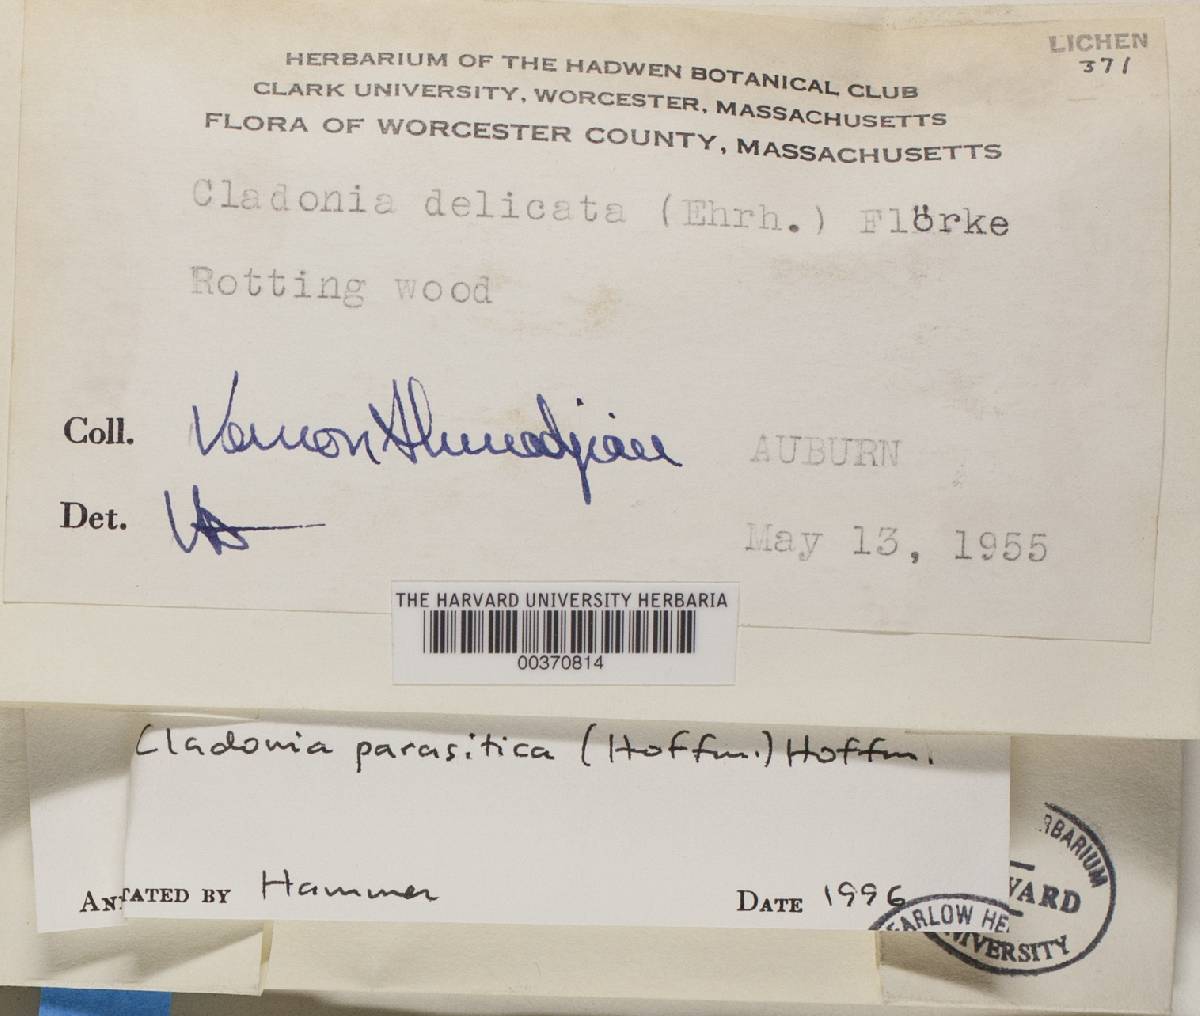 LICHEN
371
HERBARIUM OF THE HADWEN BOTANICAL CLUB
CLARK UNIVERSITY, WORCESTER, MASSACHUSETTS
FLORA OF WORCESTER COUNTY, MASSACHUSETTS
Cladonia delicata (Ehrh.) Flörke
Rotting wood
Coll. Vernon Ahmadjian AUBURN
Det. VA May 13, 1955
THE HARVARD UNIVERSITY HERBARIA
00370814
Cladonia parasitica (Hoffm.) Hoffm.
ANTATED BY Hammer DATE 1996
RBARIUM
VARD
FARLOW HE
NIVERSITY